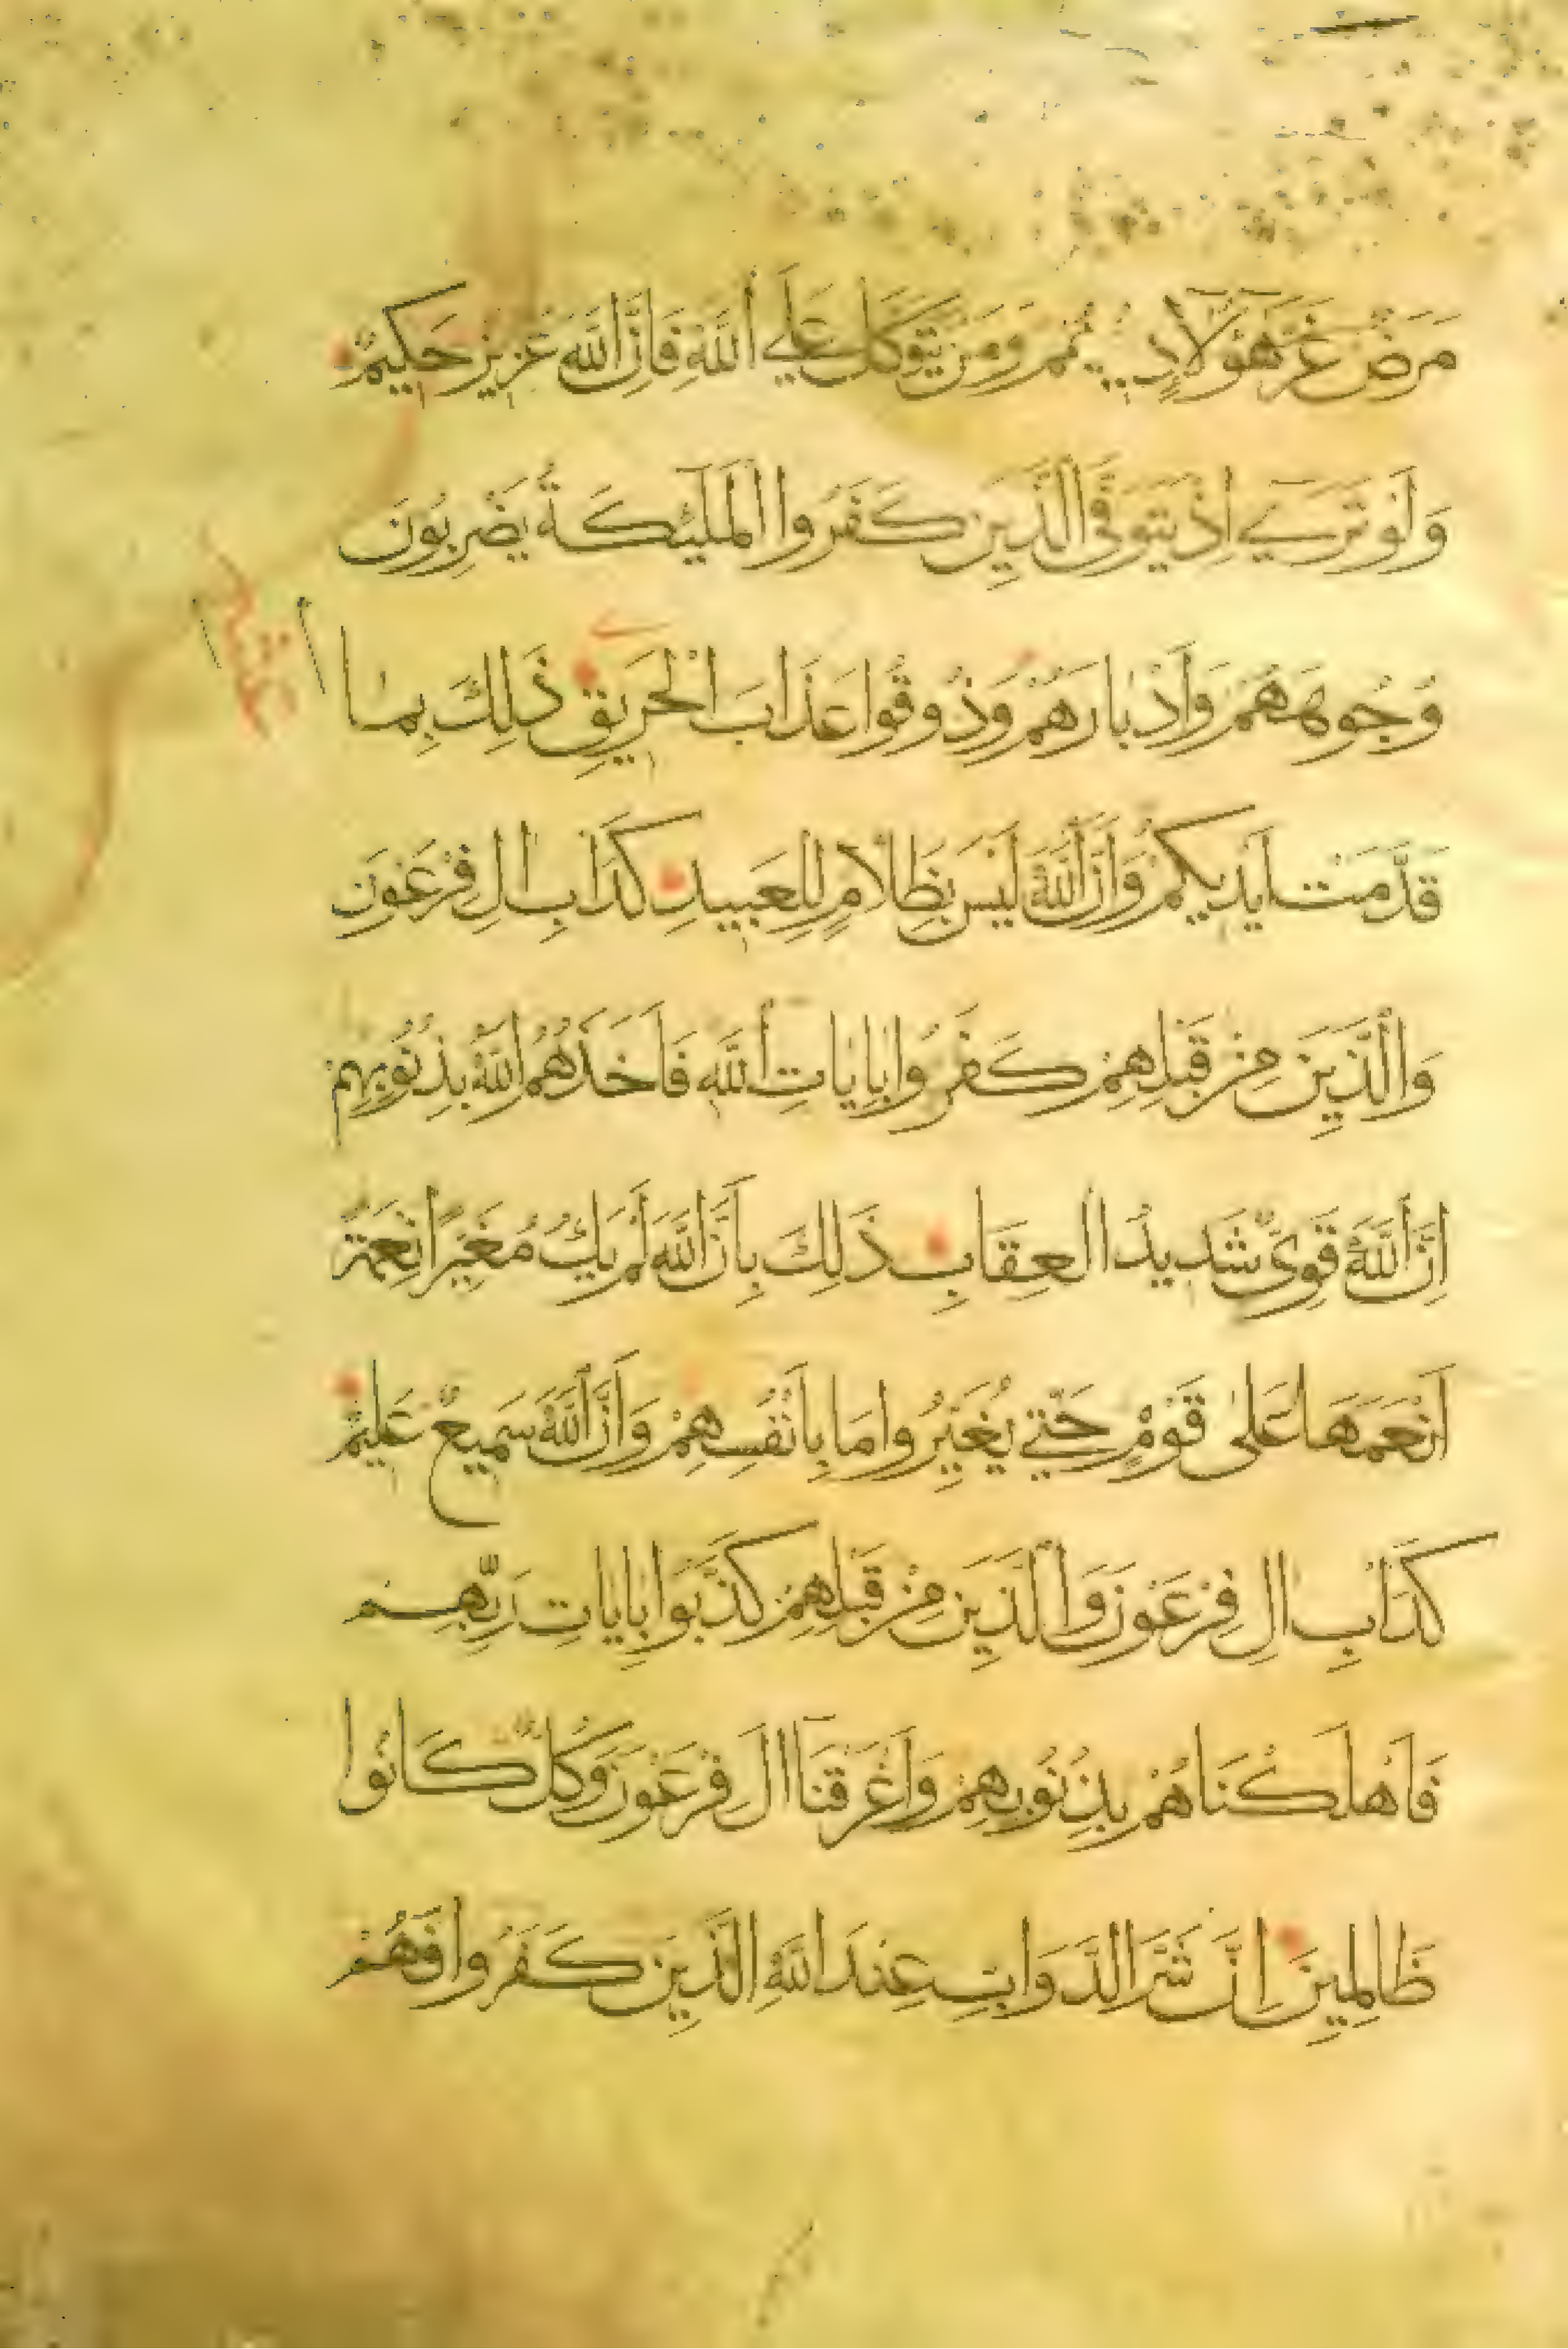 مَرَضٌ غَرَّ هَؤُلَآءِ دِينُهُمْ وَمَنْ يَتَوَكَّلْ عَلَى اللَّهِ فَإِنَّ اللَّهَ عَزِيزٌ حَكِيمٌ
وَلَوْ تَرَى إِذْ يَتَوَفَّى الَّذِينَ كَفَرُوا الْمَلَئِكَةُ يَضْرِبُونَ
وُجُوهَهُمْ وَأَدْبَارَهُمْ وَذُوقُوا عَذَابَ الْحَرِيقِ ذَلِكَ بِمَا
قَدَّمَتْ أَيْدِيكُمْ وَأَنَّ اللَّهَ لَيْسَ بِظَلَّامٍ لِلْعَبِيدِ كَدَأْبِ الِ فِرْعَوْنَ
وَالَّذِينَ مِنْ قَبْلِهِمْ كَفَرُوا بِايَاتِ اللَّهِ فَأَخَذَهُمُ اللَّهُ بِذُنُوبِهِمْ
إِنَّ اللَّهَ قَوِيٌّ شَدِيدُ الْعِقَابِ ذَلِكَ بِأَنَّ اللَّهَ لَمْ يَكُ مُغَيِّرًا نِعْمَةً
أَنْعَمَهَا عَلَى قَوْمٍ حَتَّى يُغَيِّرُوا مَا بِأَنْفُسِهِمْ وَأَنَّ اللَّهَ سَمِيعٌ عَلِيمٌ
كَدَأْبِ الِ فِرْعَوْنَ وَالَّذِينَ مِنْ قَبْلِهِمْ كَذَّبُوا بِايَاتِ رَبِّهِمْ
فَأَهْلَكْنَاهُمْ بِذُنُوبِهِمْ وَأَغْرَقْنَا الَ فِرْعَوْنَ وَكُلٌّ كَانُوا
ظَالِمِينَ إِنَّ شَرَّ الدَّوَابِّ عِنْدَ اللَّهِ الَّذِينَ كَفَرُوا فَهُمْ